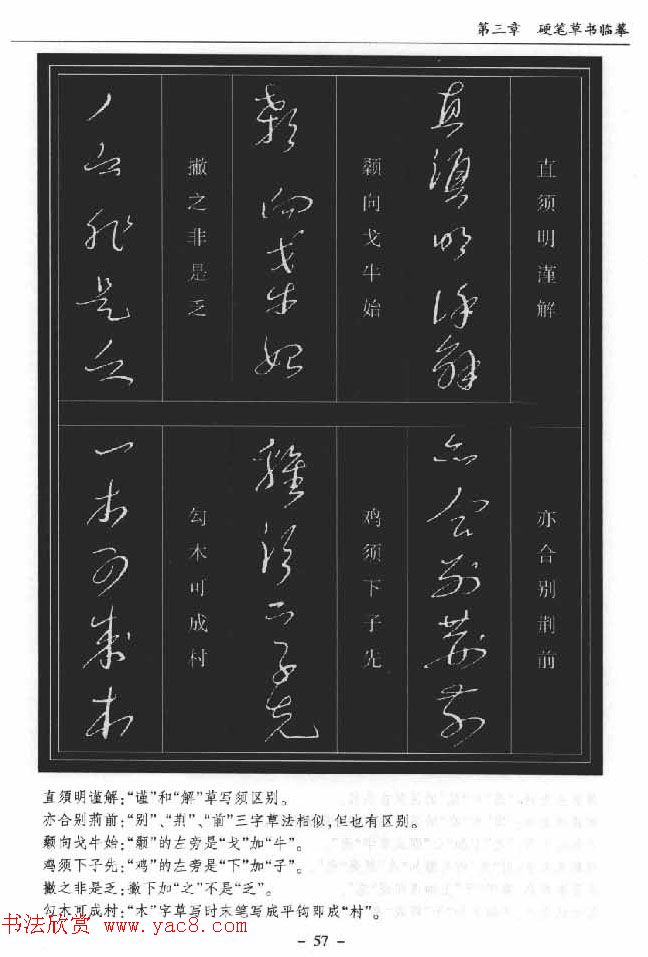 第三章 硬笔草书临摹
直须明谨解
直须明谨解
亦合别荆前
亦合别荆前
颡向戈牛始
颡向戈牛始
鸡须下子先
鸡须下子先
撇之非是乏
丿之非是乏
勾木可成村
一木可成村
直須明谨解:“谨”和“解”草写须区别。
亦合别荊前:“别”、“荆”、“前”三字草法相似,但也有区别。
颡向戈牛始:“颡”的左旁是“戈”加“牛”。
鸡须下子先:“鸡”的左旁是“下”加“子”。
撇之非是乏:撇下加“之”不是“乏”。
勾木可成村:“木”字草写时末笔写成平钩即成“村”。
书法欣赏 www.yac8.com
- 57 -